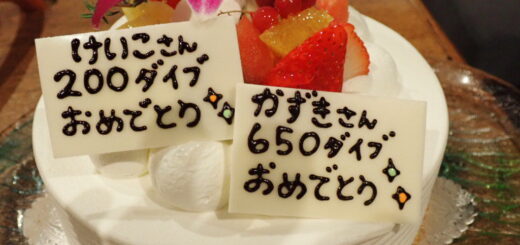 けいこさん
200ダイブ
おめでとう
かずきさん
650ダイブ
おめでとう